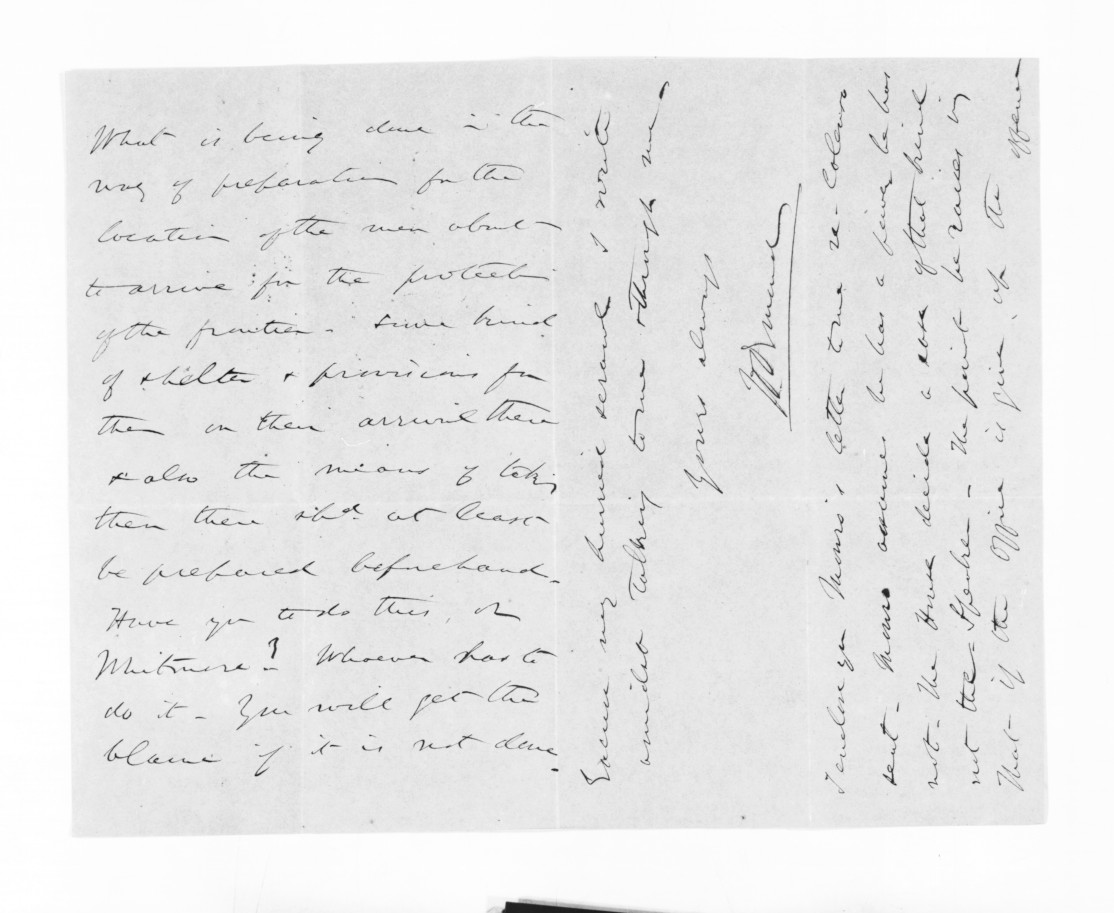 What is being done in the
way of preparation for the
location of the men about
to arrive for the protection
of the frontier. Some kind
of shelter & provisions for
them on their arrival there
& also the means of taking
them there shd. at least
be prepared beforehand.
Have you to do this, or
Whitmore? Whoever has to
do it - You will get the
blame if it is not done.
Excuse my hurried scrawl I write
amidst talking to me & through me
Yours always
I enclose you Monro's letter to me re-
sent - Monro assume he has a power he has
not - The House decide a case of that kind
not the Speaker - The point be raises is
that if the Office is given up the